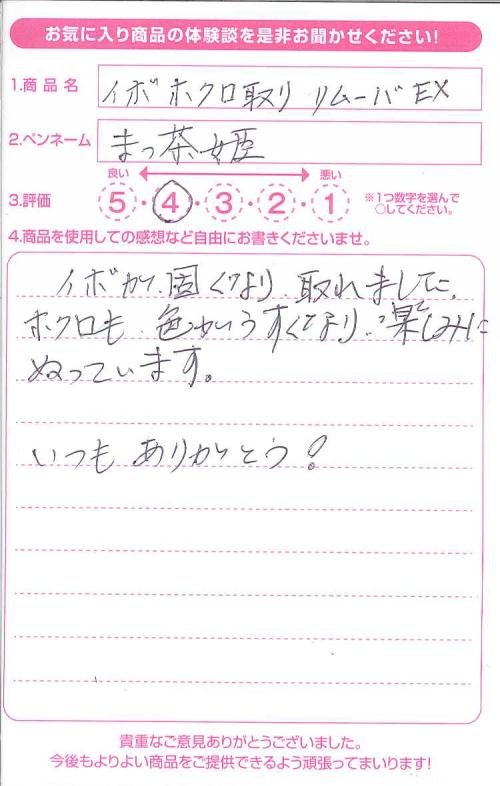 お気に入り商品の体験談を是非お聞かせください!
1.商品名 イボ ホクロ取り リムーバ EX
2.ペンネーム まっ茶姫
良い 悪い
3.評価 5・4・3・2・1 ※1つ数字を選んで
○してください。
4.商品を使用しての感想など自由にお書きくださいませ。
イボが、固くなり 取れました。
ホクロも 色がうすくなり、楽しみに
ぬっています。
いつも ありがとう!
貴重なご意見ありがとうございました。
今後もよりよい商品をご提供できるよう頑張ってまいります!